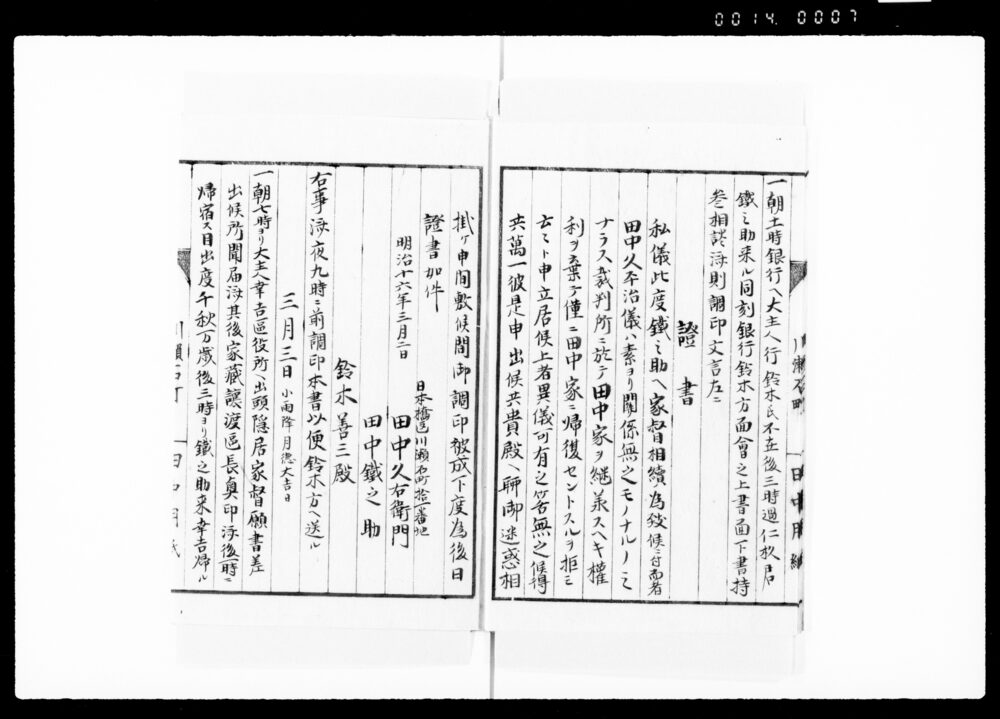 0014.0007
一朝十時銀行ヘ大主人行鈴木氏不在後三時過仁杉居
鐵之助来ル同刻銀行鈴木方面會之上書面下書持
参相談済則調印文言左ニ
證書
私儀此度鐵之助ヘ家督相續為致候ニ付而者
田中久平治儀ハ素ヨリ關係無之モノナルノミ
ナラス裁判所ニ於テ田中家ヲ継承スヘキ權
利ヲ棄テ僅ニ田中家ニ帰復セントスルヲ拒ミ
云々ト申立居候上者異儀可有之筈無之候得
共萬一彼是申出候共貴殿ヘ聊御迷惑相
掛ケ申間敷候間御調印被成下度為後日
證書如件
明治十六年三月二日
日本橋區川瀬石町拾一番地
田中久右衛門
田中鐵之助
鈴木善三殿
右事済夜九時ニ前調印本書以便鈴木方ヘ送ル
三月三日 小雨降月徳大吉日
一朝七時ヨリ大主人幸吉區役所ヘ出頭隠居家督願書差
出候所聞届済其後家藏譲渡區長奥印済後一時ニ
帰宿ス目出度千秋万歳後三時ヨリ鐵之助来幸吉帰ル